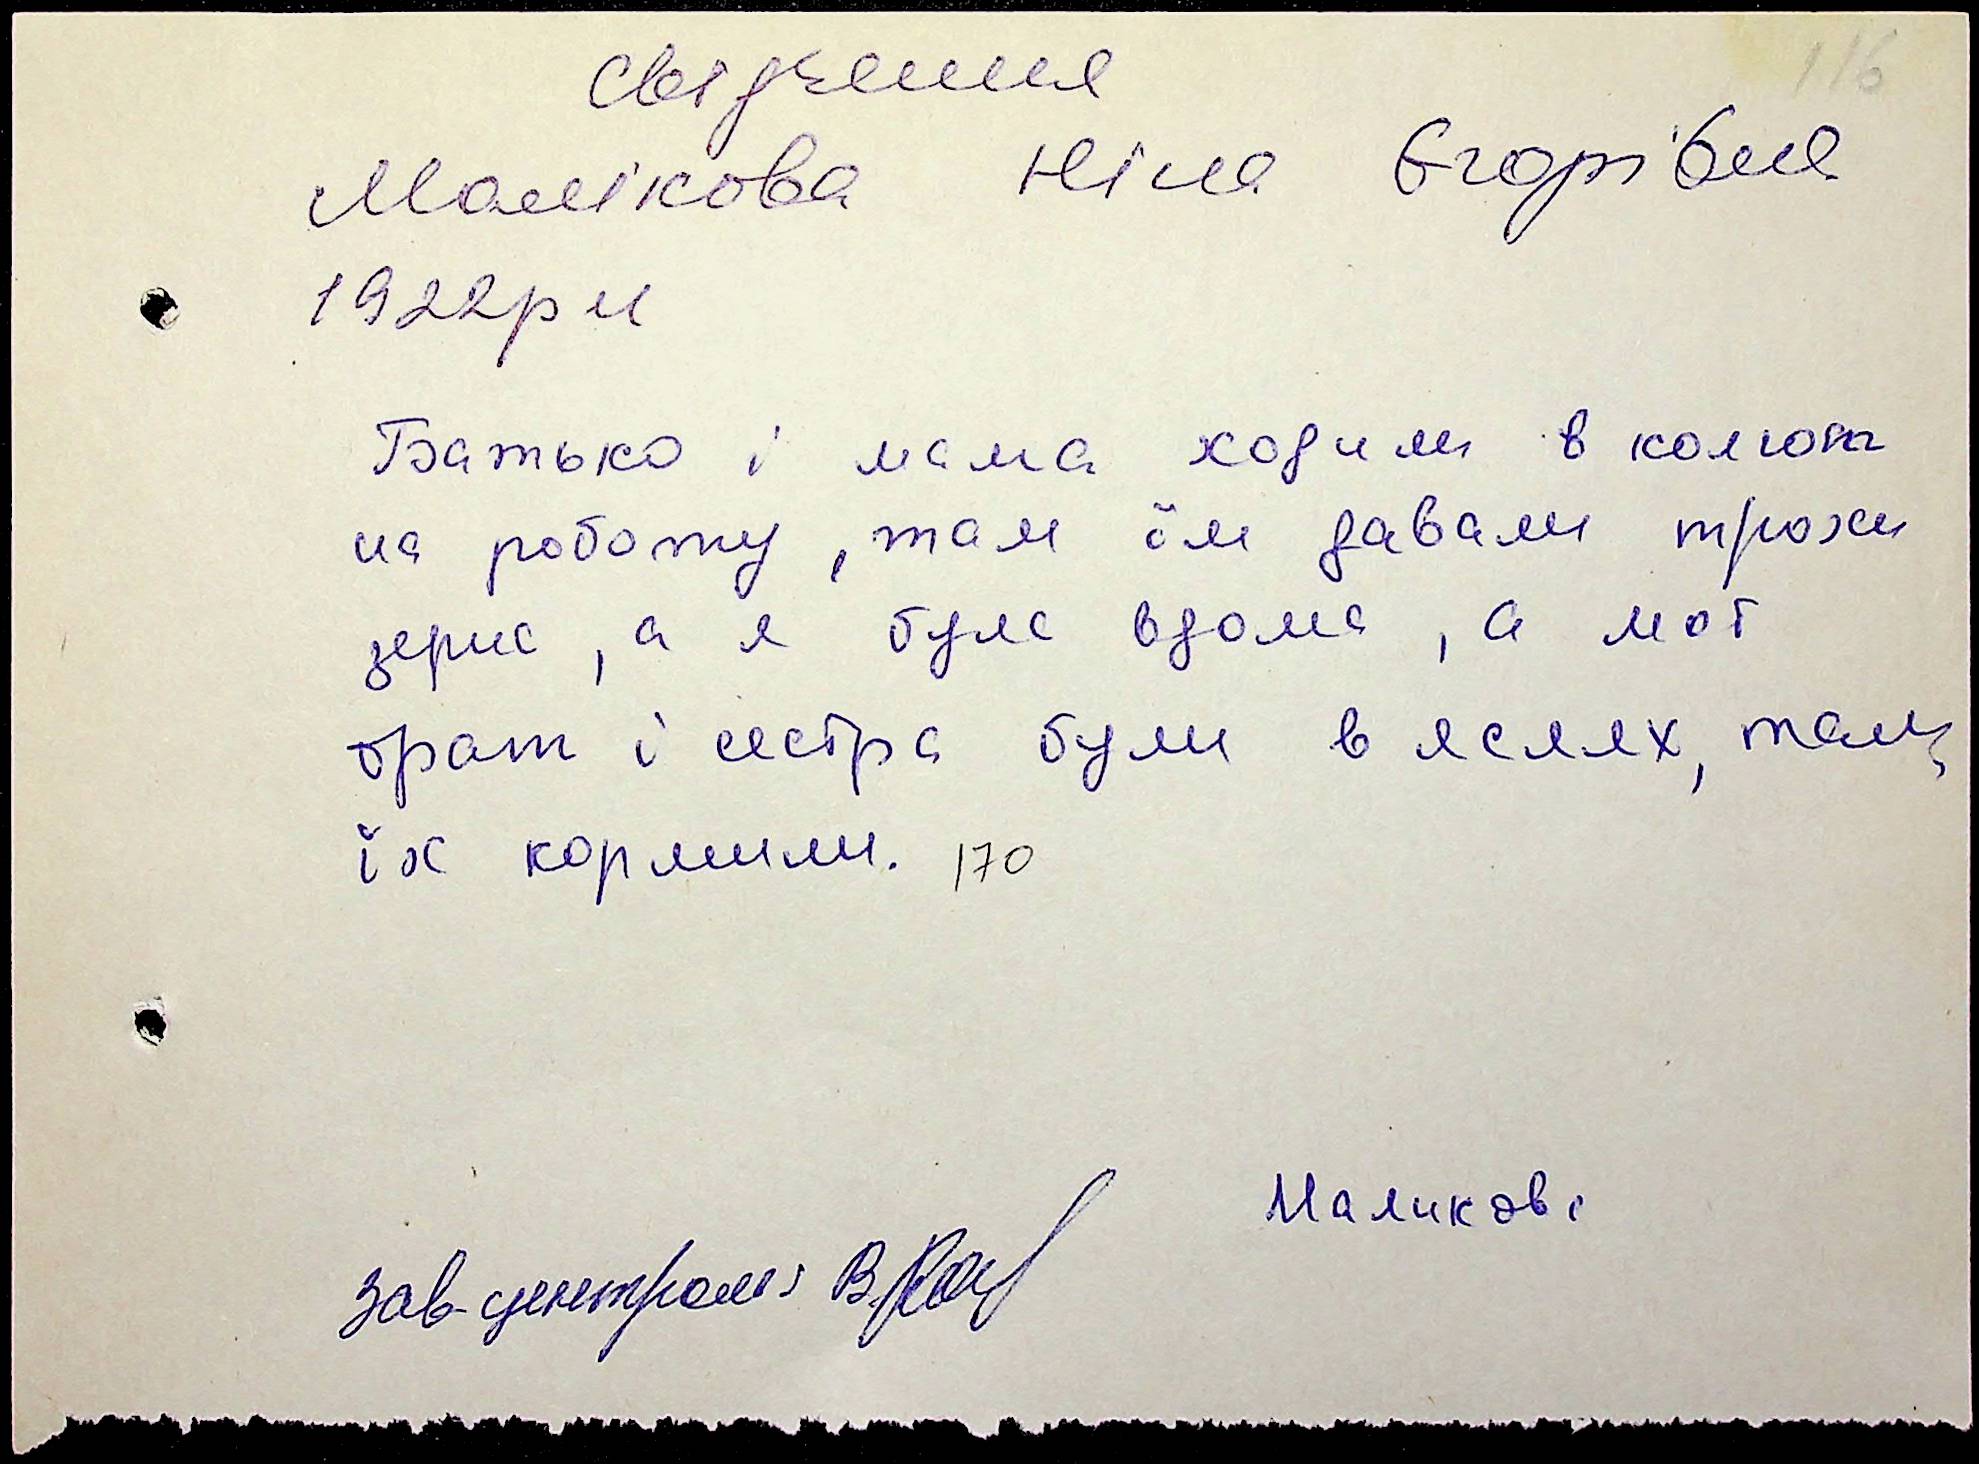 116
Свідчення
Малікова Ніна Єгорівна
1922 р н
Батько і мама ходили в колгосп
на роботу, там їм давали трохи
зерна, а я була вдома, а мої
брат і сестра були в яслях, там
їх кормили. 170
Маликова
Зав. центром: